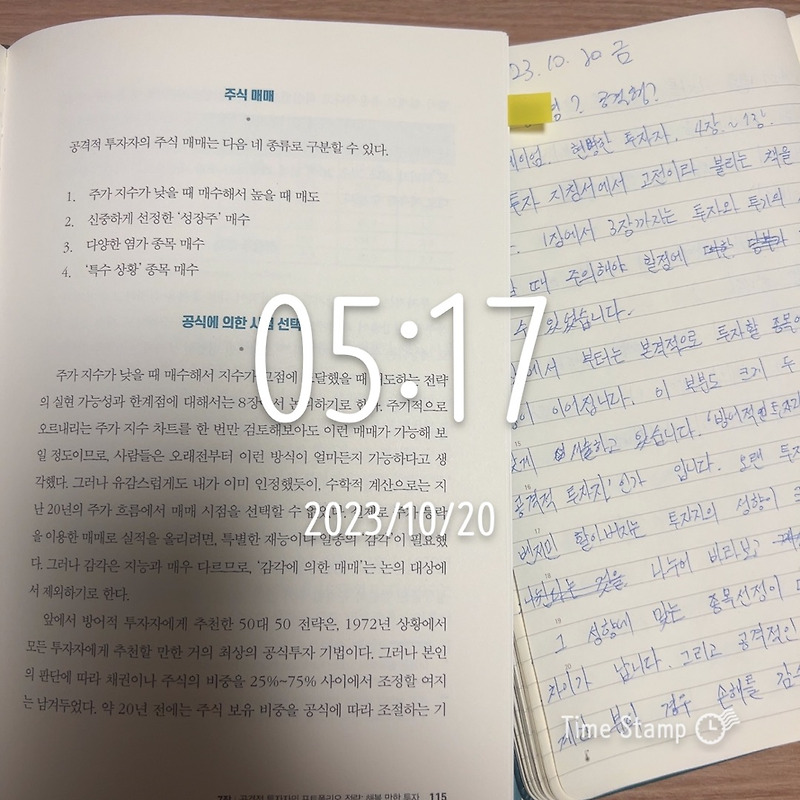 주식 매매
공격적 투자자의 주식 매매는 다음 네 종류로 구분할 수 있다.
1. 주가 지수가 낮을 때 매수해서 높을 때 매도
2. 신중하게 선정한 ‘성장주’ 매수
3. 다양한 염가 종목 매수
4. ‘특수 상황’ 종목 매수
공식에 의한 선택
주가 지수가 낮을 때 매수해서 지수가 고점에 도달했을 때 매도하는 전략
의 실현 가능성과 한계점에 대해서는 8장에서 논의하기로 한다. 주기적으로
오르내리는 주가 지수 차트를 한 번만 검토해보아도 이런 매매가 가능해 보
일 정도이므로, 사람들은 오래전부터 이런 방식이 얼마든지 가능하다고 생
각했다. 그러나 유감스럽게도 내가 이미 인정했듯이, 수학적 계산으로는 지
난 20년의 주가 흐름에서 매매 시점을 선택할 수 없었다.
을 이용한 매매로 실적을 올리려면, 특별한 재능이나 일종의 ‘감각’이 필요했
다. 그러나 감각은 지능과 매우 다르므로, ‘감각에 의한 매매’는 논의 대상에
서 제외하기로 한다.
앞에서 방어적 투자자에게 추천한 50대 50 전략은, 1972년 상황에서
모든 투자자에게 추천할 만한 거의 최상의 공식투자 기법이다. 그러나 본인
의 판단에 따라 채권이나 주식의 비중을 25%~75% 사이에서 조정할 여지
는 남겨두었다. 약 20년 전에는 주식 보유 비중을 공식에 따라 조절하는 기
7장 · 공격적 투자자의 포트폴리오 전략: 해볼 만한 투자 115
05:17
2023/10/20
23.10.20 금
? 공격형?
현명한 투자자. 4장~
투자 지침서에서 고전이라 불리는 책을
1장에서 3장까지는 투자와 투기의
때 주의해야 할점에
수 있었습니다.
부터는 본격적으로 투자할 종목
이어집니다. 이 부분도 크게 두
서술하고 있습니다. '방어적인 투자자
공격적 투자자'인가 입니다. 오랜 투자
벤저민 할아버지는 투자자의 성향이
것을 나누어 바라보고
그 성향에 맞는 종목선정이
차이가 납니다. 그리고 공격적인
경우 손해를
Time Stamp